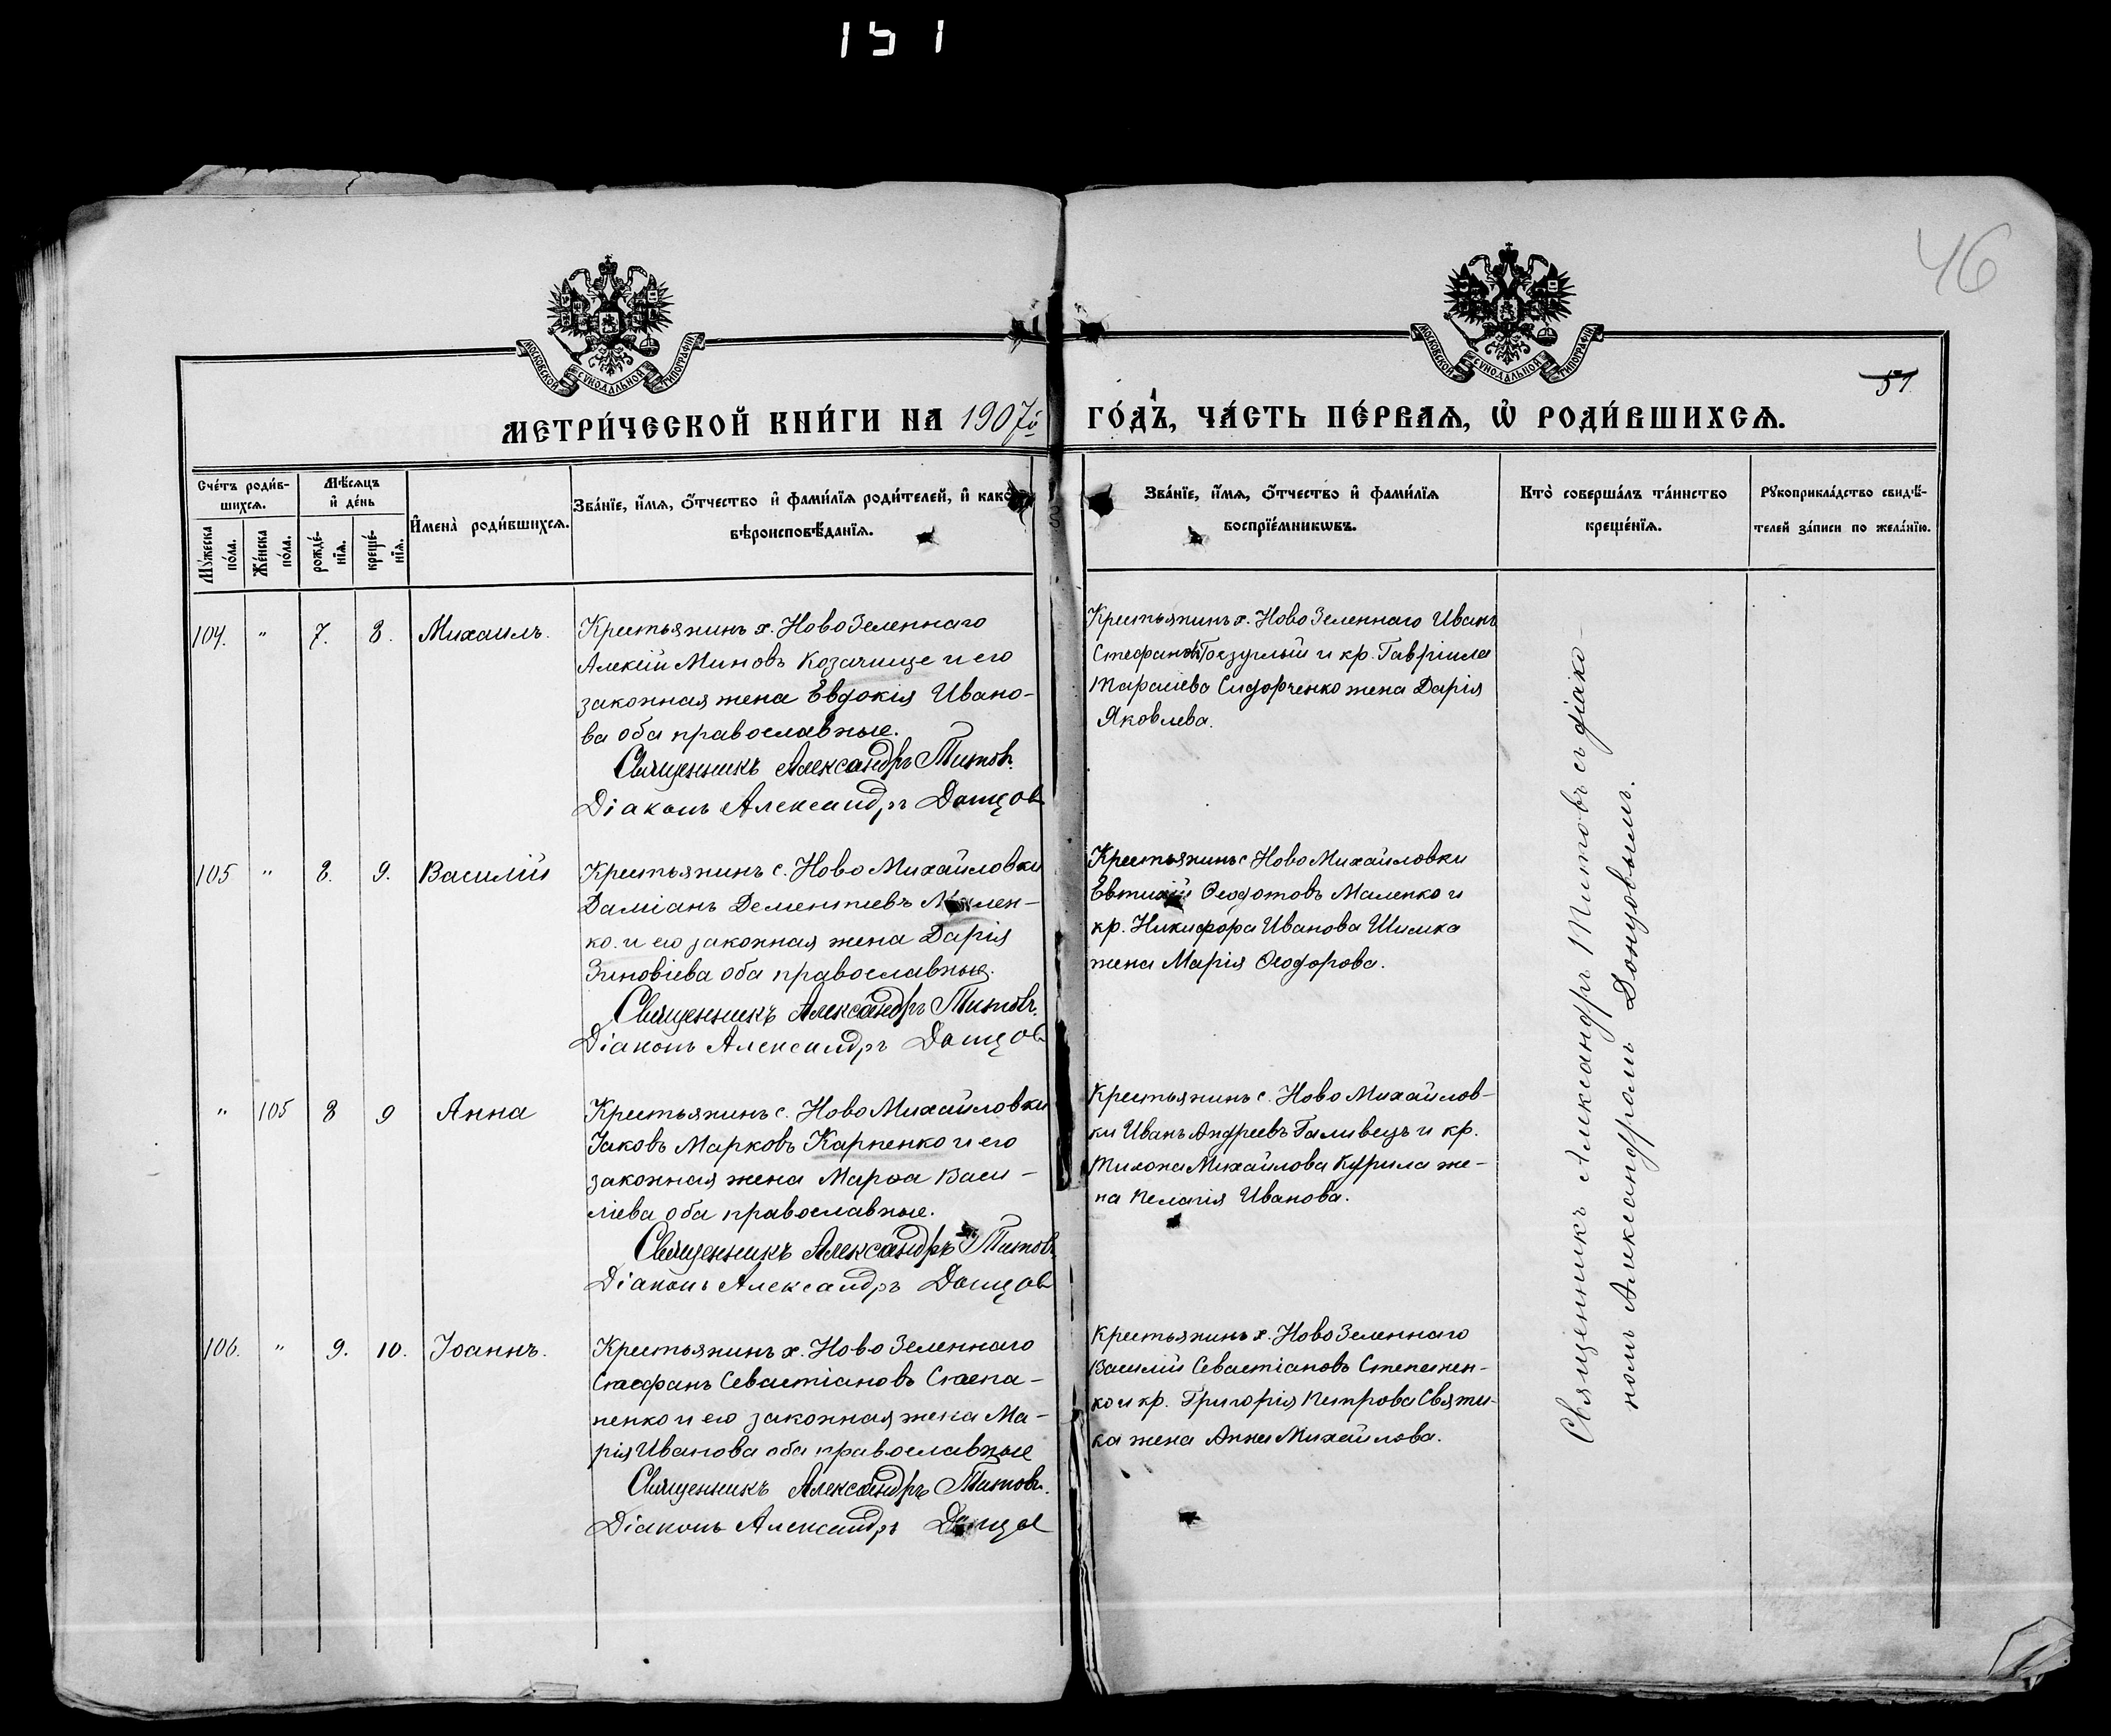 151
46
МОСКОВСКОЙ СУНОДАЛЬНОЙ ТИПОГРАФІИ
МОСКОВСКОЙ СУНОДАЛЬНОЙ ТИПОГРАФІИ
57
МЕТРИ́ЧЕСКОЙ КНИ́ГИ НА 1907й ГО́ДЪ, ЧА́СТЬ ПЕ́РВАЯ, Ѡ҆ РОДИ́ВШИХСЯ.
Сче́тъ роди́в-
шихсѧ.
Мꙋ́жеска
по́ла.
Же́нска
по́ла.
Мѣ́сѧцъ
и҆ де́нь
рожде́-
нїѧ.
креще́-
нїѧ.
И҆мена̀ роди́вшихсѧ.
Зва́нїе, и҆́мѧ, ѻ҆́тчество и҆ фами́лїѧ роди́телей, и҆ како́
вѣроисповѣ́данїѧ.
Зва́нїе, и҆́мѧ, ѻ҆́тчество и҆ фами́лїѧ
воспрїе́мникѡвъ.
Кто̀ соверша́лъ та́инство
креще́нїѧ.
Рꙋкоприкла́дство свидѣ́-
телей за́писи по жела́нїю.
104. " 7. 8. Михаилъ.
Крестьянинъ х. Ново Зеленнаго
Алексій Миновъ Козачище и его
законная жена Евдокія Ивано-
ва оба православные.
Священникъ Александръ Титовъ.
Діаконъ Александръ Донцов
Крестьянинъ х. Ново Зеленнаго Иванъ
и кр. Гавріила
Тарасіева Сидорченко жена Дарія
Яковлева.
105 " 8. 9. Василій
Крестьянинъ с. Ново Михайловки
Даміанъ Дементіевъ Мален-
ко. и его законная жена Дарія
Зиновіева оба православные.
Священникъ Александръ Титовъ.
Діаконъ Александръ Донцов
Крестьянинъ с Ново Михайловки
Евтихій Ѳеодотовъ Маленко и
кр. Никифора Иванова Шимка
жена Марія Ѳеодорова.
" 105 8 9 Анна
Крестьянинъ с. Ново Михайловки
Іаковъ Марковъ Карпенко и его
законная жена Марѳа Васи-
ліева оба православные.
Священникъ Александръ Титовъ.
Діаконъ Александръ Донцов
Крестьянинъ с. Ново Михайлов-
ки Иванъ Андреевъ Галивецъ и кр.
Тихона Михайлова Курила же-
на Пелагія Иванова.
106. " 9. 10. Іоаннъ.
Крестьянинъ х. Ново Зеленнаго
Стефанъ Севастіановъ Степа-
ненко и его законная жена Ма-
рія Иванова оба православные
Священникъ Александръ Титовъ.
Діаконъ Александръ Донцов
Крестьянинъ х. Ново Зеленнаго
Василій Севастіановъ Степанен-
ко и кр. Григорія Петрова Святи-
ка жена Анна Михайлова.
Священникъ Александръ Титовъ съ діако-
номъ Александромъ Донцовымъ.